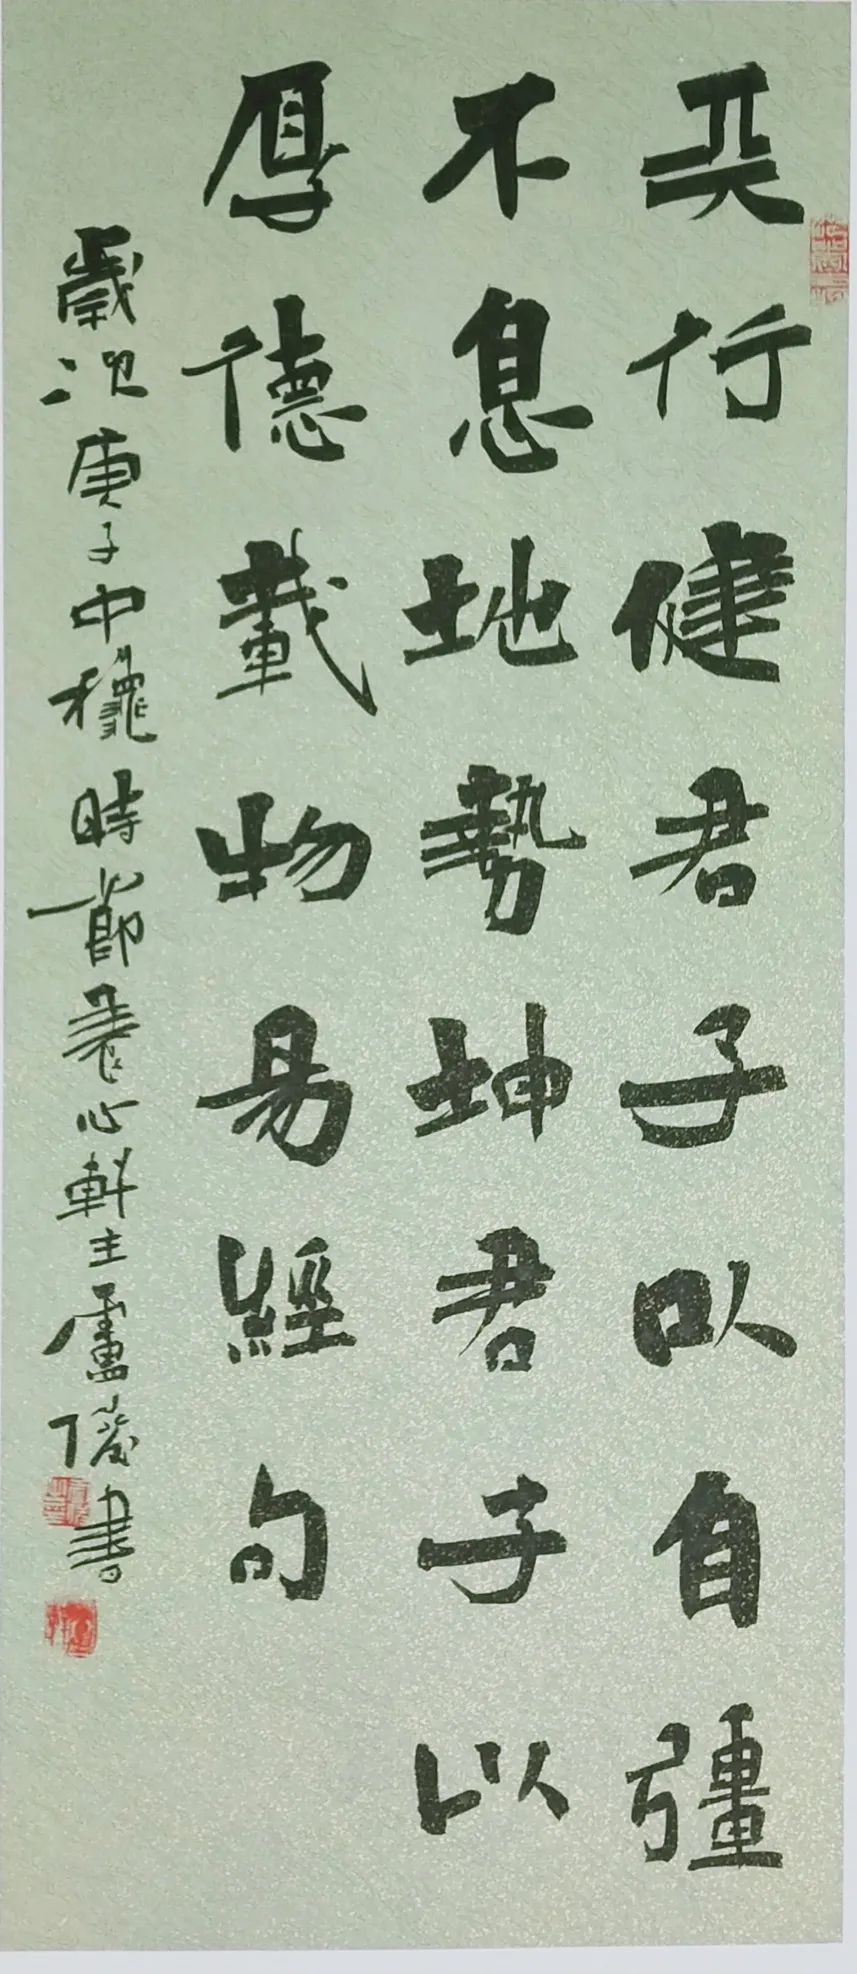 天行健君子以自彊
不息地勢坤君子以
厚德載物易經句
歲次庚子中龝時節養心軒主盧書